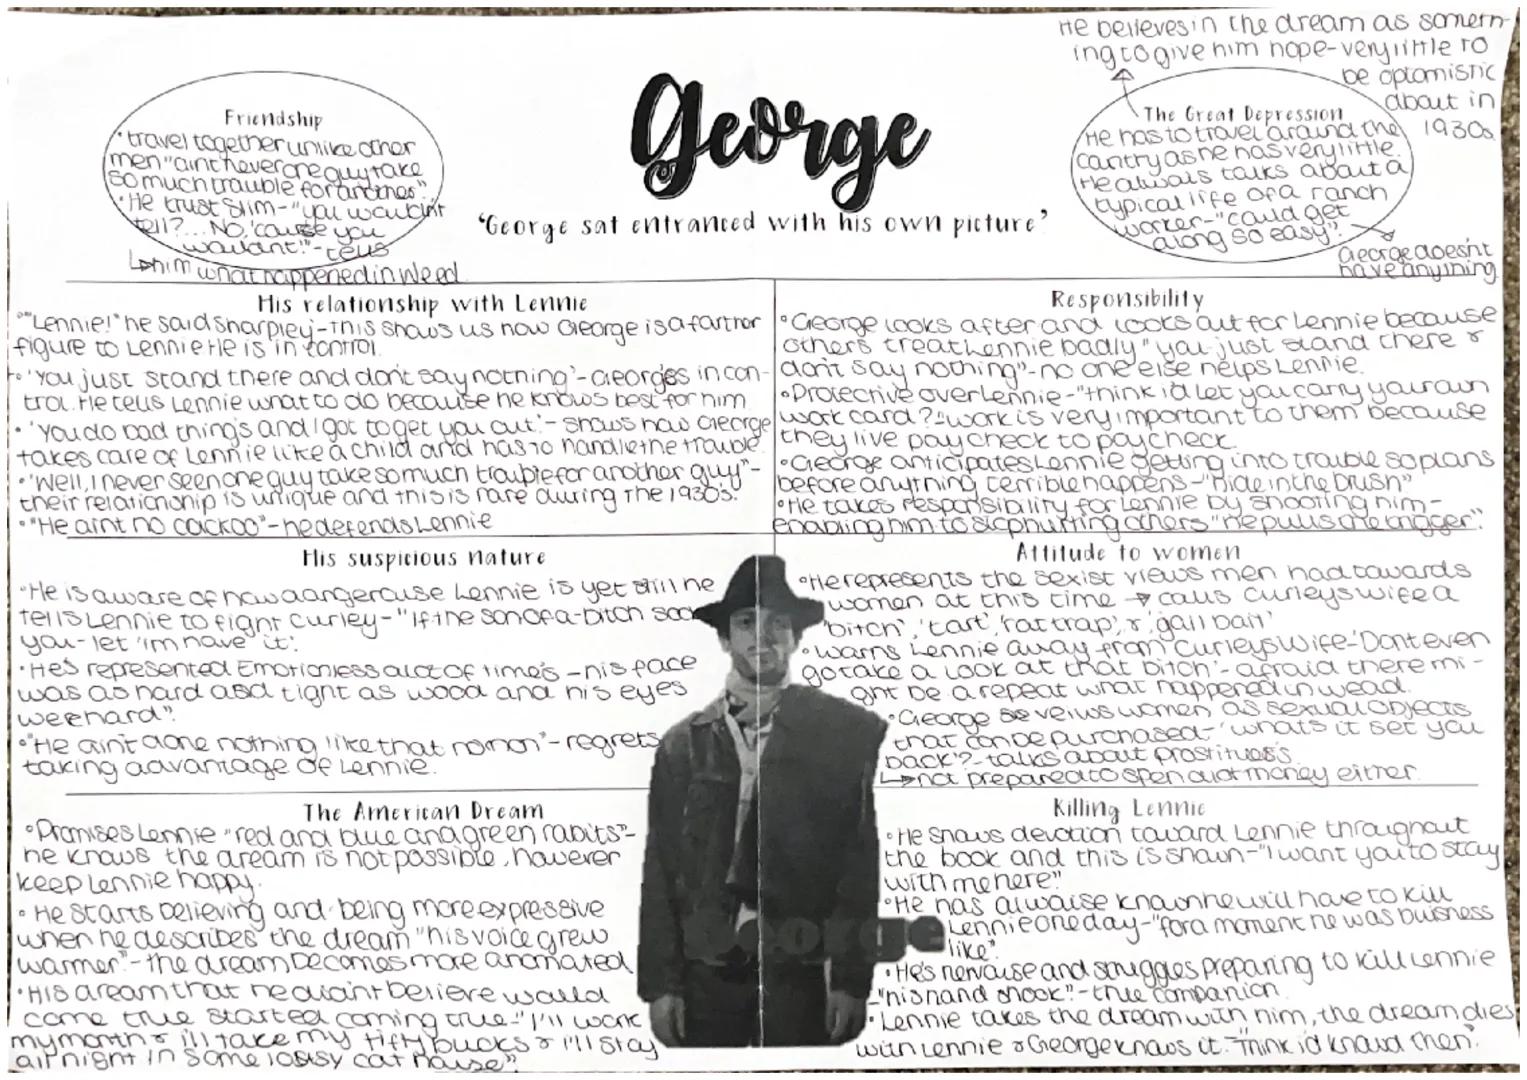 George
'George sat entranced with his own picture'
Friendship
• travel together unlike other
men "aint never one guy take
so much trouble for another"
• He trust Slim - "you wouldn't
tell?... No, 'cause you
wouldn't!" - tells
↳ him what happened in Weed
He believes in the dream as someth-
ing to give him hope - very little to
be optomistic
about in
1930s
The Great Depression
He has to travel around the
cantry as he has very little
He always talks about a
typical life of a ranch
worker - "could get
along so easy"
George doesn't
have anything
His relationship with Lennie
• "Lennie!" he said sharpley - this shows us how George is a farther
figure to Lennie He is in control.
• 'You just stand there and don't say nothing' - Georges in con-
trol. He tells Lennie what to do because he knows best for him
• 'You do bad thing's and I got to get you out' - shows how George
takes care of Lennie like a child and has to handle the trouble.
• 'Well, I never seen one guy take so much trouble for another guy" -
their relationship is unique and this is rare during the 1930s.
• "He aint no cuckoo" - he defends Lennie
Responsibility
• George looks after and looks out for Lennie because
others treat Lennie badly "you just stand there &
don't say nothing" - no one else helps Lennie.
• Protective over Lennie - "think i'd let you carry your own
work card?" - work is very important to them because
they live pay check to pay check.
• George anticipates Lennie getting into trouble so plans
before anything terrible happens - "hide in the brush"
• He takes responsibility for Lennie by shooting him -
enabling him to stop hurting others "he pulls the trigger".
His suspicious nature
• He is aware of how dangerouse Lennie is yet still he
tells Lennie to fight Curley - "If the son of a-bitch
you - let 'im have it'.
• He's represented Emotionless alot of time's - his face
was as hard and tight as wood and his eyes
were hard".
• "He ain't done nothing like that no mor" - regrets
taking advantage of Lennie.
Attitude to women
• He represents the sexist views men had towards
women at this time → calls Curleys wife a
'bitch', 'tart', 'rat trap', & 'gail bait'
• warns Lennie away from Curleys wife - 'Don't even
go take a look at that bitch' - afraid there mi-
ght be a repeat what happened in wead.
• George views women as sexual objects
that can be purchased - 'whats it set you
back'? - talks about prostitues's.
↳ not prepared to spen alot money either.
The American Dream
• Promises Lennie "red and blue and green rabits" -
he knows the dream is not possible, however
keep Lennie happy.
• He starts believing and being more expressive
when he describes the dream "his voice grew
warmer" - the dream becomes more anomated
• His dream that he didn't believe would
come true started coming true - "I'll work
my month & i'll take my fifty bucks & i'll stay
all night in some lousy cat house".
Killing Lennie
• He shows devotion toward Lennie throughout
the book and this is shown - "I want you to stay
with me here"
• He has alwaise known he will have to kill
Lennie one day - "for a moment he was buisness
like".
• He's nervouse and struggles preparing to kill Lennie
- "his hand shook" - true companion
• Lennie takes the dream with him, the dream dies
with Lennie & George knows it. "Think i'd knowd then".
George